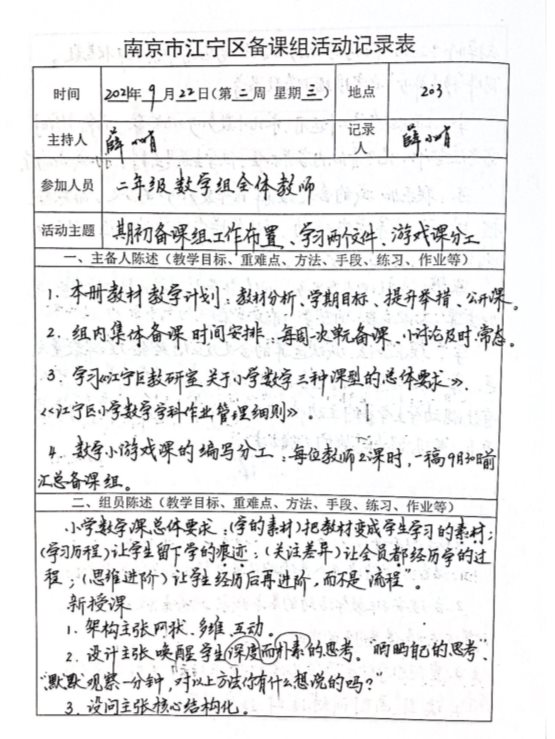 南京市江宁区备课组活动记录表
时间 2021年9月22日(第二周 星期三) 地点 203
主持人 薛小娟 记录人 薛小娟
参加人员 二年级数学组全体教师
活动主题 期初备课组工作布置、学习两个文件、游戏课分工
一、主备人陈述（教学目标、重难点、方法、手段、练习、作业等）
1. 本册教材教学计划：教材分析、学期目标、提升举措、公开课。
2. 组内集体备课时间安排：每周一次单元备课、小讨论及时、常态。
3. 学习《江宁区教研室关于小学数学三种课型的总体要求》、
《江宁区小学数学学科作业管理细则》。
4. 数学小游戏课的编写分工：每位教师2课时，一稿9月30日前
汇总备课组。
二、组员陈述（教学目标、重难点、方法、手段、练习、作业等）
小学数学课总体要求：(学的素材)把教材变成学生学习的素材；
(学习历程)让学生留下学的痕迹；(关注差异)让全员都经历学的过
程；(思维进阶)让学生经历后再进阶，而不是"流程"。
新授课
1. 架构主张网状、多维、互动。
2. 设计主张唤醒学生深度而朴素的思考。"晒晒自己的思考"、
"默默观察一分钟，对以上方法你有什么想说的吗？"
3. 设问主张核心结构化。